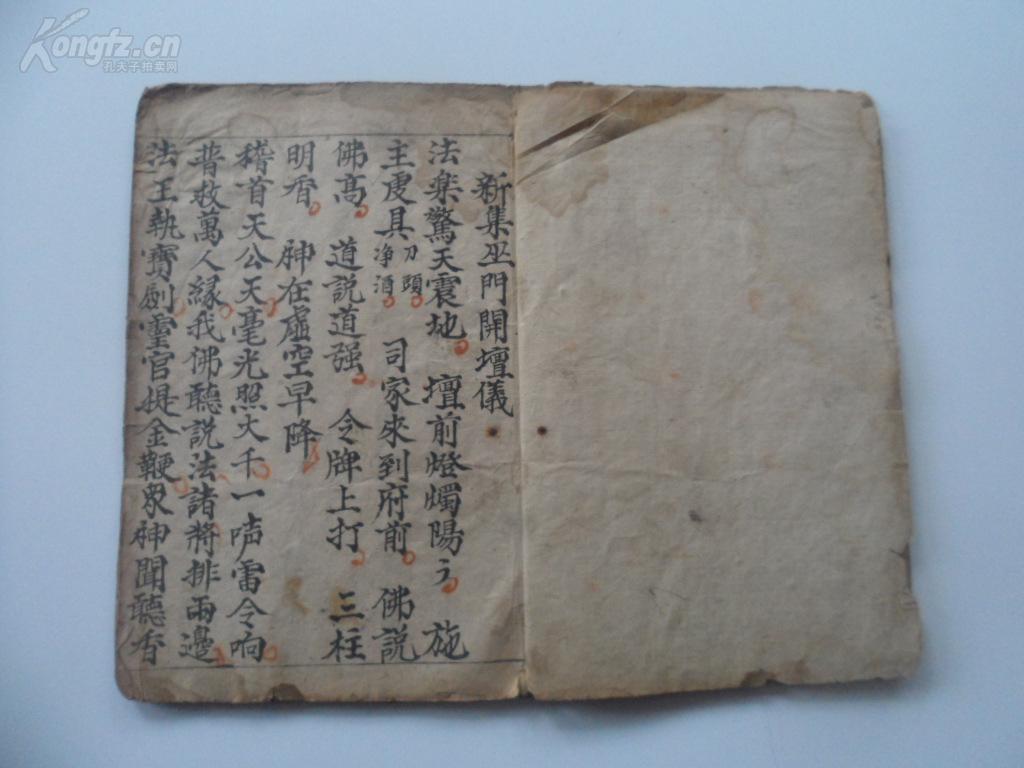 Kongfz.cn
孔夫子拍卖网
新集巫門開壇儀
法楽驚天震地 壇前燈燭陽々 施
主虔具刀頭净酒 司家來到府前 佛説
佛髙 道説道强 令牌上打 三柱
明香 神在虚空早降
稽首天公天毫光照大千一声雷令响
普救萬人縁我佛聴説法諸將排两邊
法王執寳劍霊官提金鞭衆神聞聴香